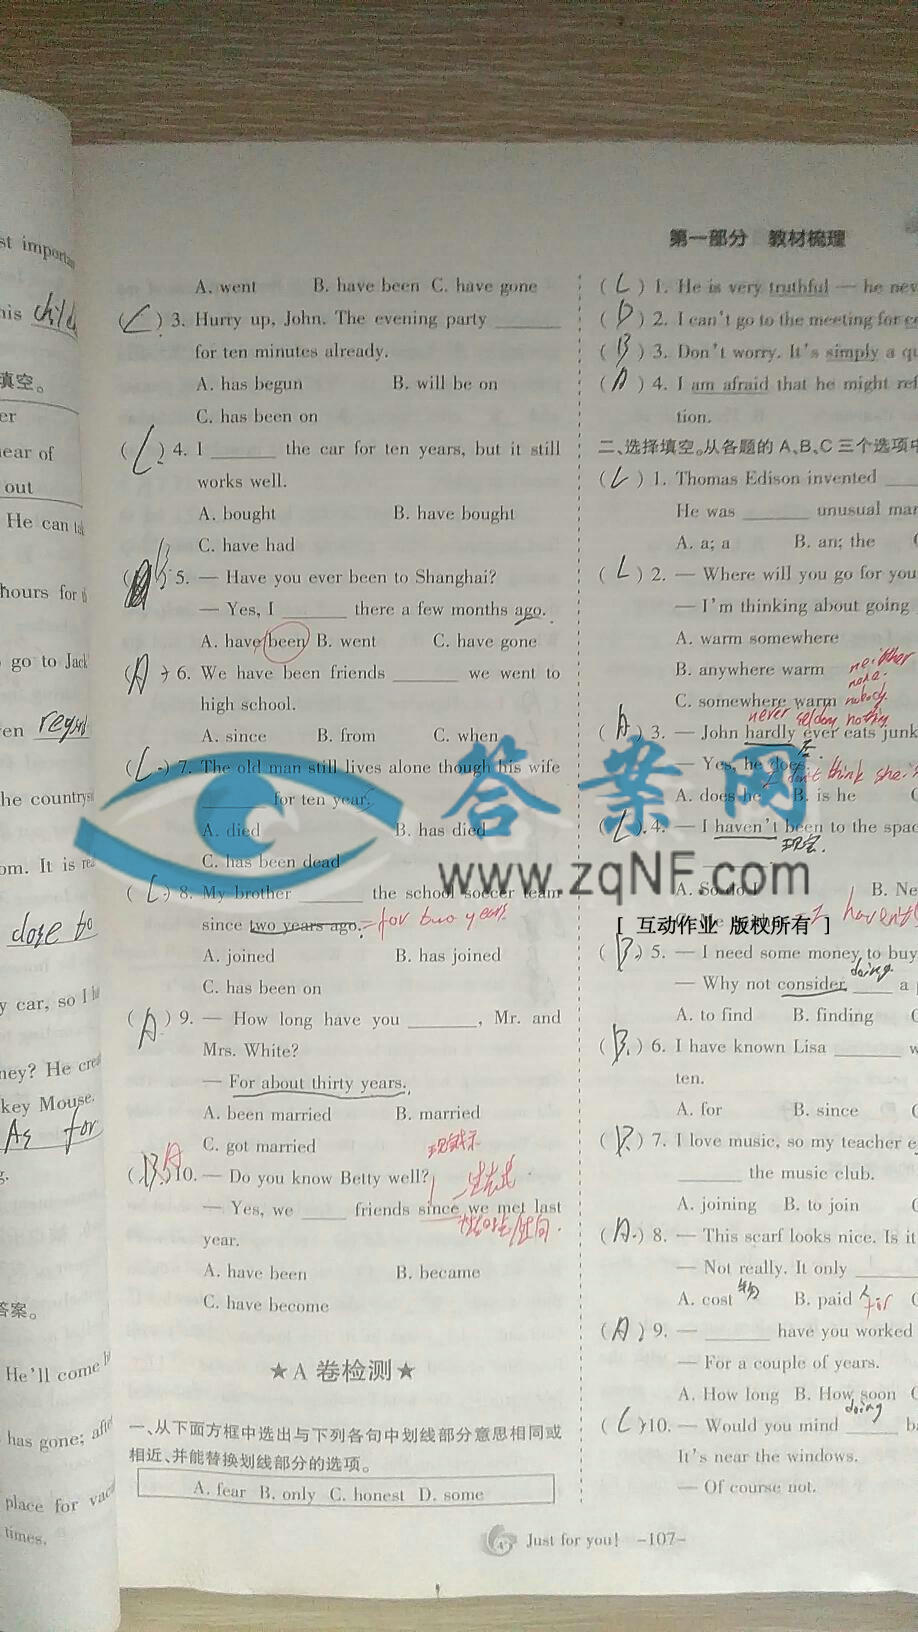 st importan
his child
填空。
er
hear of
out
He can tak
hours for th
o go to Jack
en regard
he countrys
om. It is rea
close to
y car, so I h
ney? He crea
key Mouse.
As for
g.
答案。
He'll come b
has gone; afte
place for vaca
times.
第一部分 教材梳理
A. went B. have been C. have gone
( C ) 3. Hurry up, John. The evening party ______
for ten minutes already.
A. has begun B. will be on
C. has been on
( C ) 4. I ______ the car for ten years, but it still
works well.
A. bought B. have bought
C. have had
( B ) 5. — Have you ever been to Shanghai?
— Yes, I ______ there a few months ago.
A. have been B. went C. have gone
( A ) 6. We have been friends ______ we went to
high school.
A. since B. from C. when
( C ) 7. The old man still lives alone though his wife
______ for ten year.
A. died B. has died
C. has been dead
( C ) 8. My brother ______ the school soccer team
since two years ago. = for two years
A. joined B. has joined
C. has been on
( A ) 9. — How long have you ______, Mr. and
Mrs. White?
— For about thirty years.
A. been married B. married
C. got married
( B ) A 10. — Do you know Betty well?
— Yes, we ____ friends since we met last
year.
A. have been B. became
C. have become
★A 卷检测★
一、从下面方框中选出与下列各句中划线部分意思相同或
相近、并能替换划线部分的选项。
A. fear B. only C. honest D. some
( C ) 1. He is very truthful — he nev
( D ) 2. I can't go to the meeting for ce
( B ) 3. Don't worry. It's simply a qu
( A ) 4. I am afraid that he might ref
tion.
二、选择填空。从各题的 A、B、C 三个选项中
( C ) 1. Thomas Edison invented ___
He was ______ unusual man
A. a; a B. an; the C
( C ) 2. — Where will you go for you
— I'm thinking about going
A. warm somewhere
B. anywhere warm neither
none
C. somewhere warm nobody
never seldom nothing
( A ) 3. — John hardly ever eats junk
— Yes, he does. I don't think she is
A. does he B. is he
( C ) 4. — I haven't been to the spac
— ______
A. So do I B. Ne
I haven't
( B ) 5. — I need some money to buy
doing
— Why not consider ____ a p
A. to find B. finding C
( B ) 6. I have known Lisa ______ w
ten.
A. for B. since C
( B ) 7. I love music, so my teacher e
______ the music club.
A. joining B. to join C
( A ) 8. — This scarf looks nice. Is it
— Not really. It only ______
A. cost 物 B. paid 人 for
( A ) 9. — ______ have you worked
— For a couple of years.
A. How long B. How soon C
doing
( C ) 10. — Would you mind _____ ba
It's near the windows.
— Of course not.
Just for you! -107-
答案网
www.zqNF.com
[ 互动作业 版权所有 ]